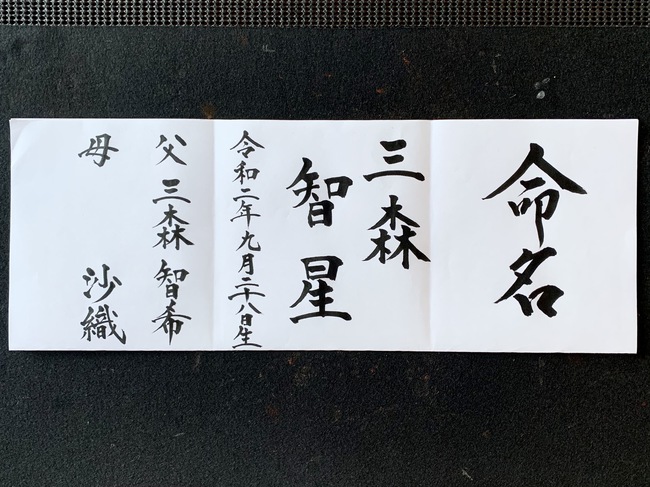 命名
三森
智星
令和二年九月二十八日生
父 三森 智希
母 沙織